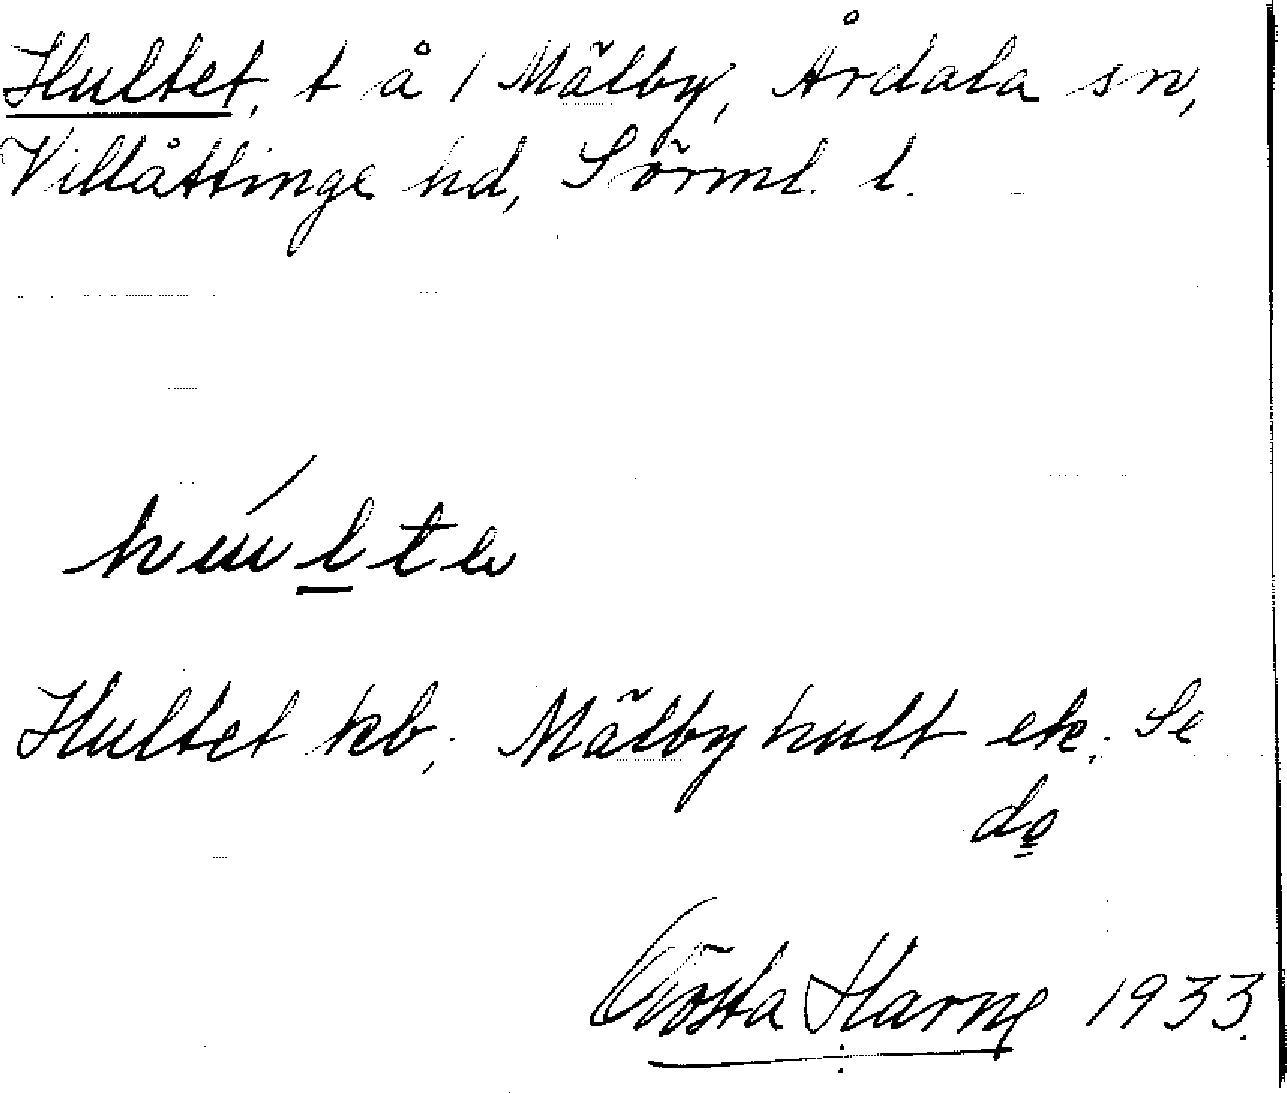 Hultet, t å / Mälby, Årdala sn,
Villåttinge hd, Sörml. l.
Hultet kb; Mälbyhult ek; Se
do
Gösta Harne 1933.